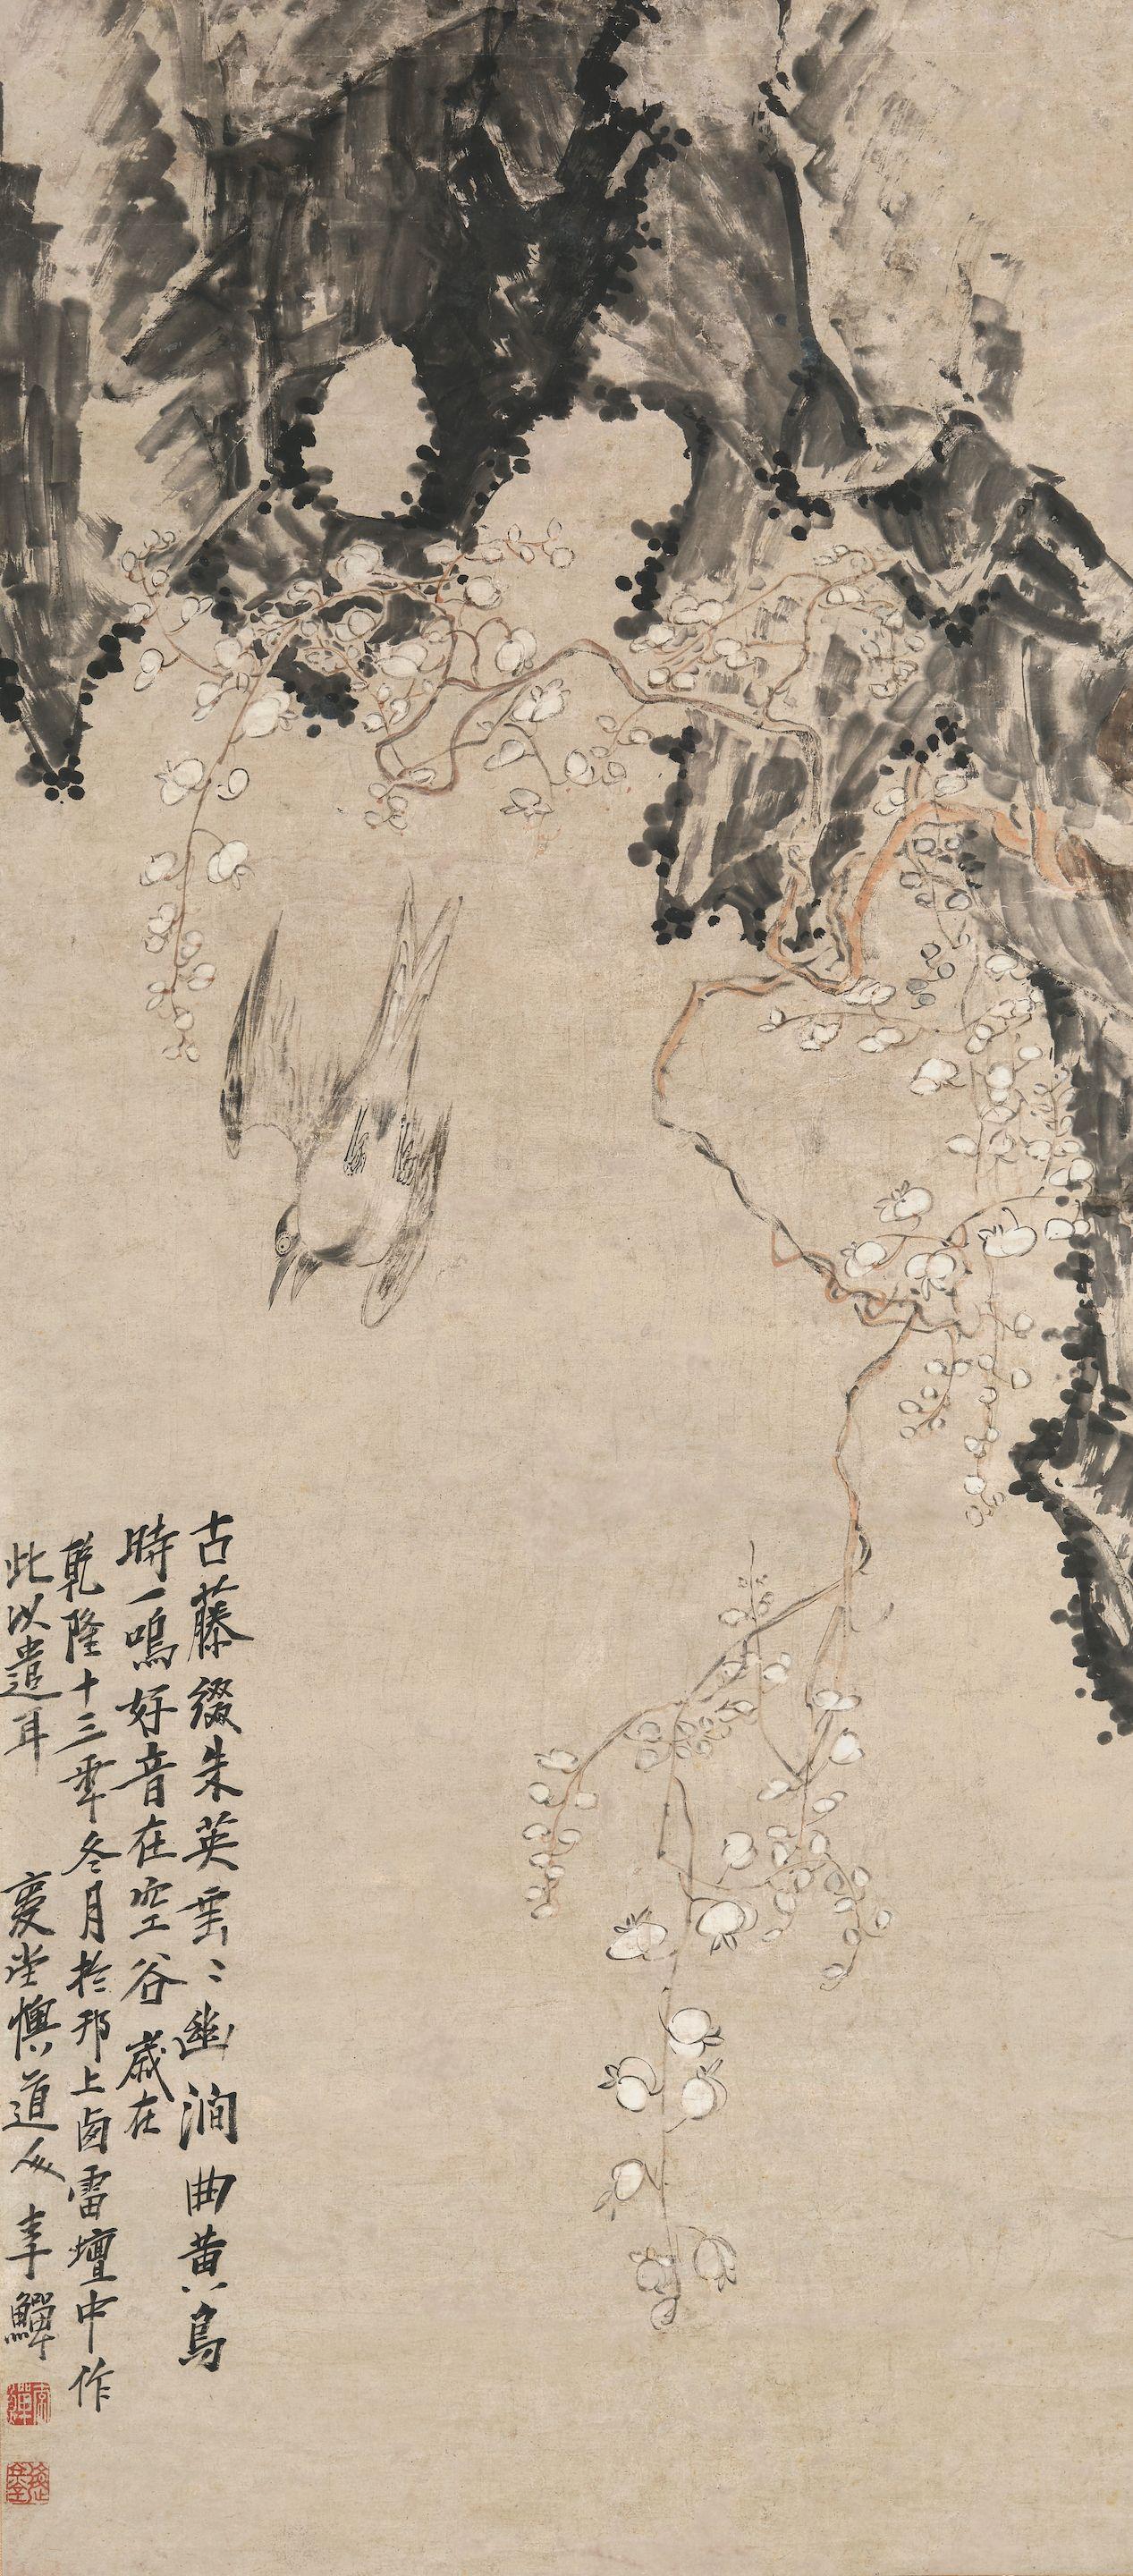 古藤綴朱英垂〻幽澗曲黄鳥
時一鳴好音在空谷 歳在
乾隆十三年冬月於邗上雷壇中作
此以遣耳 复堂懊道人李鱓